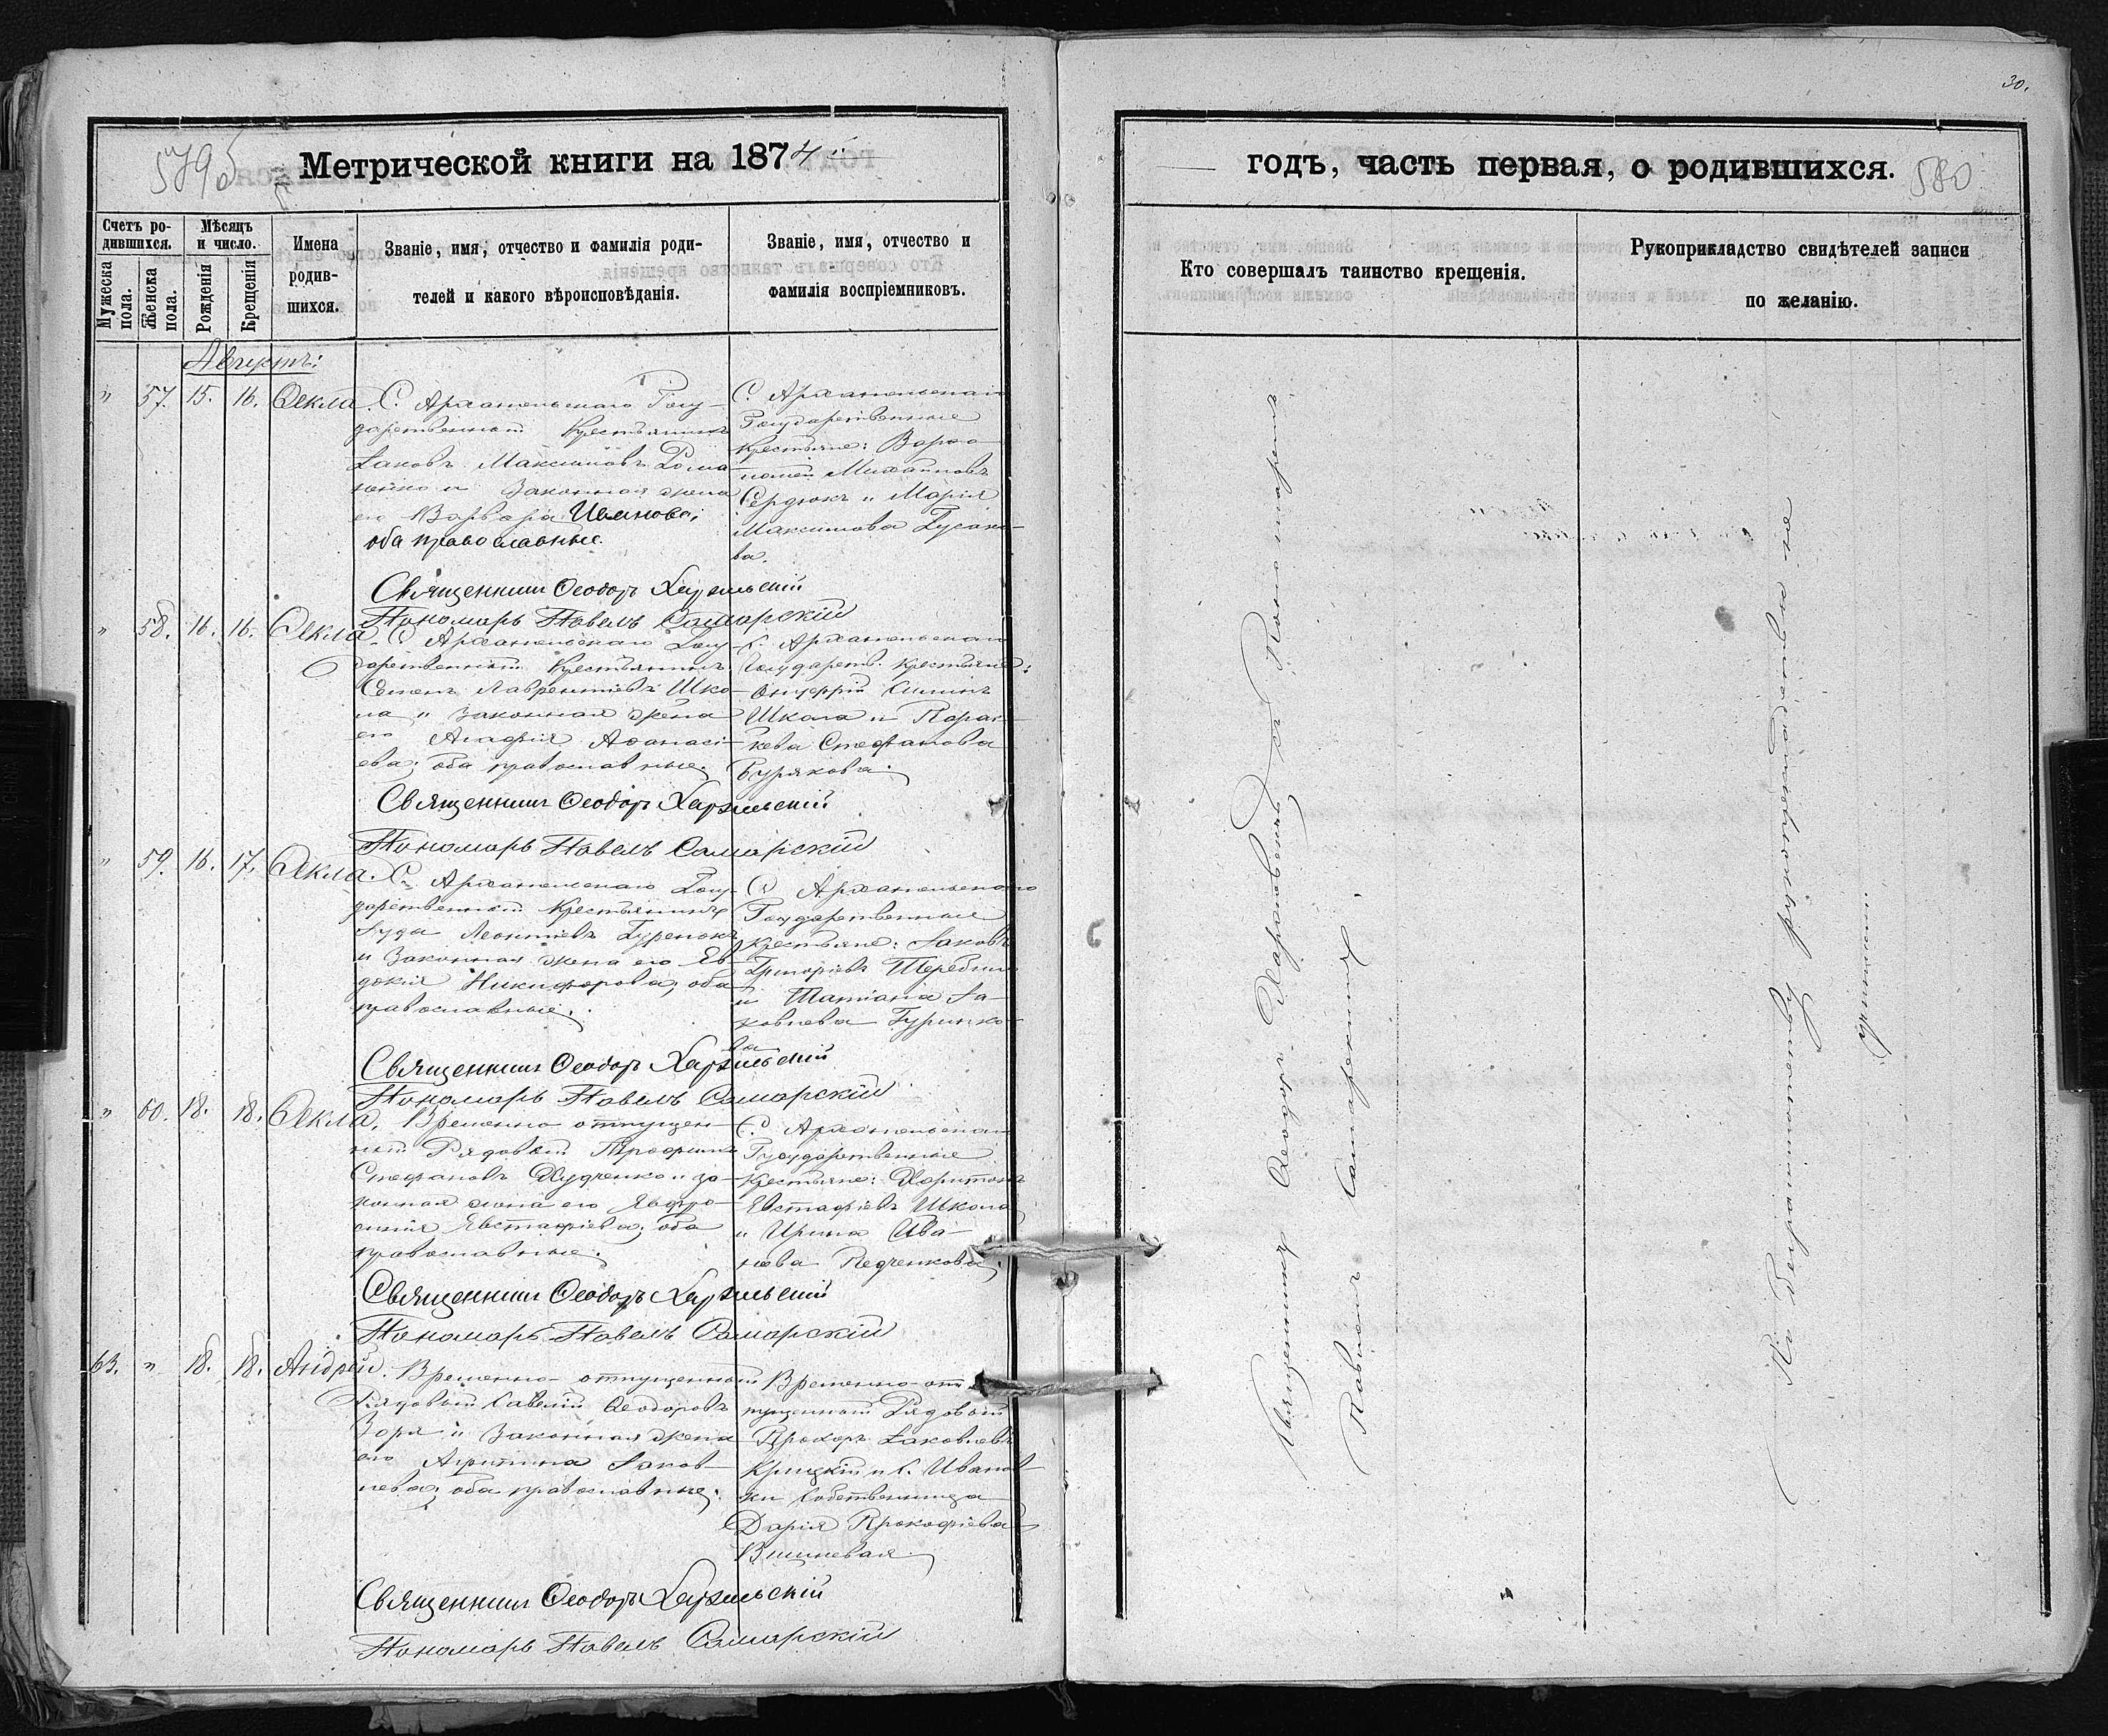 579об
Метрической книги на 1874
Счетъ ро-
дившихся.
Мужеска пола.
Женска пола.
Мѣсяцъ
и число.
Рожденія
Крещенія
Имена
родив-
шихся.
Званіе, имя, отчество и фамилія роди-
телей и какого вѣроисповѣданія.
Званіе, имя, отчество и
фамилія воспріемниковъ.
Августъ:
" 57. 15. 16. Ѳекла.
С. Архангельскаго Госу-
дарственный Крестьянинъ
Іаковъ Максимовъ
и Законная жена
его Варвара Иванова;
оба православные.
С. Архангельскаго
Государственные
Крестьяне: Варѳо-
ломей Михайловъ
Сердюкъ и Марія
Максимова Гусако-
ва.
Священникъ Ѳеодоръ
Пономарь Павелъ Самарскій
" 58. 16. 16. Ѳекла.
С. Архангельскаго Госу-
дарственный Крестьянинъ
Семенъ Лаврентіевъ Шко-
ла и Законная жена
его Агафія Аѳанасі-
ева; оба православные.
С. Архангельскаго
Государств. крестьяне:
Онуфрій
Школа и Парас-
кева Стефанова
Бурякова.
Священникъ Ѳеодоръ
Пономарь Павелъ Самарскій
" 59. 16. 17. Ѳекла.
С. Архангельскаго Госу-
дарственный Крестьянинъ
Іуда Леонтіевъ
и Законная жена его Ев-
докія Никифорова; оба
православные.
С. Архангельскаго
Государственные
Крестьяне: Іаковъ
Григоріевъ
и Татіана Іа-
ковлева Гуринко-
ва
Священникъ Ѳеодоръ
Пономарь Павелъ Самарскій
" 60. 18. 18. Ѳекла.
Временно отпущен-
ный Рядовый Трофимъ
Стефановъ и за-
конная жена его Евфро-
синія Евстафіева; оба
православные.
С. Архангельскаго
Государственные
Крестьяне: Харитонъ
Евстафіевъ Школа
и Ирина Ива-
нова Педченкова.
Священникъ Ѳеодоръ
Пономарь Павелъ Самарскій
63. " 18. 18. Андрей.
Временно-отпущенный
Рядовый Савелій Ѳеодоровъ
Зоря и Законная жена
его Агрипина Іаков-
лева; оба православные.
Временно-отп
пущенный Рядовый
Прохоръ Іаковлевъ
Крицкій и С. Иванов-
ки Собственница
Дарія Прокофіева
Вишневая.
Священникъ Ѳеодоръ
Пономарь Павелъ Самарскій
30.
годъ, часть первая, о родившихся.
580
Кто совершалъ таинство крещенія.
Рукоприкладство свидѣтелей записи
по желанію.
Священникъ Ѳеодоръ съ Пономаремъ
Павломъ Самарскимъ.
По безграмотству рукоприкладства не
учинили.